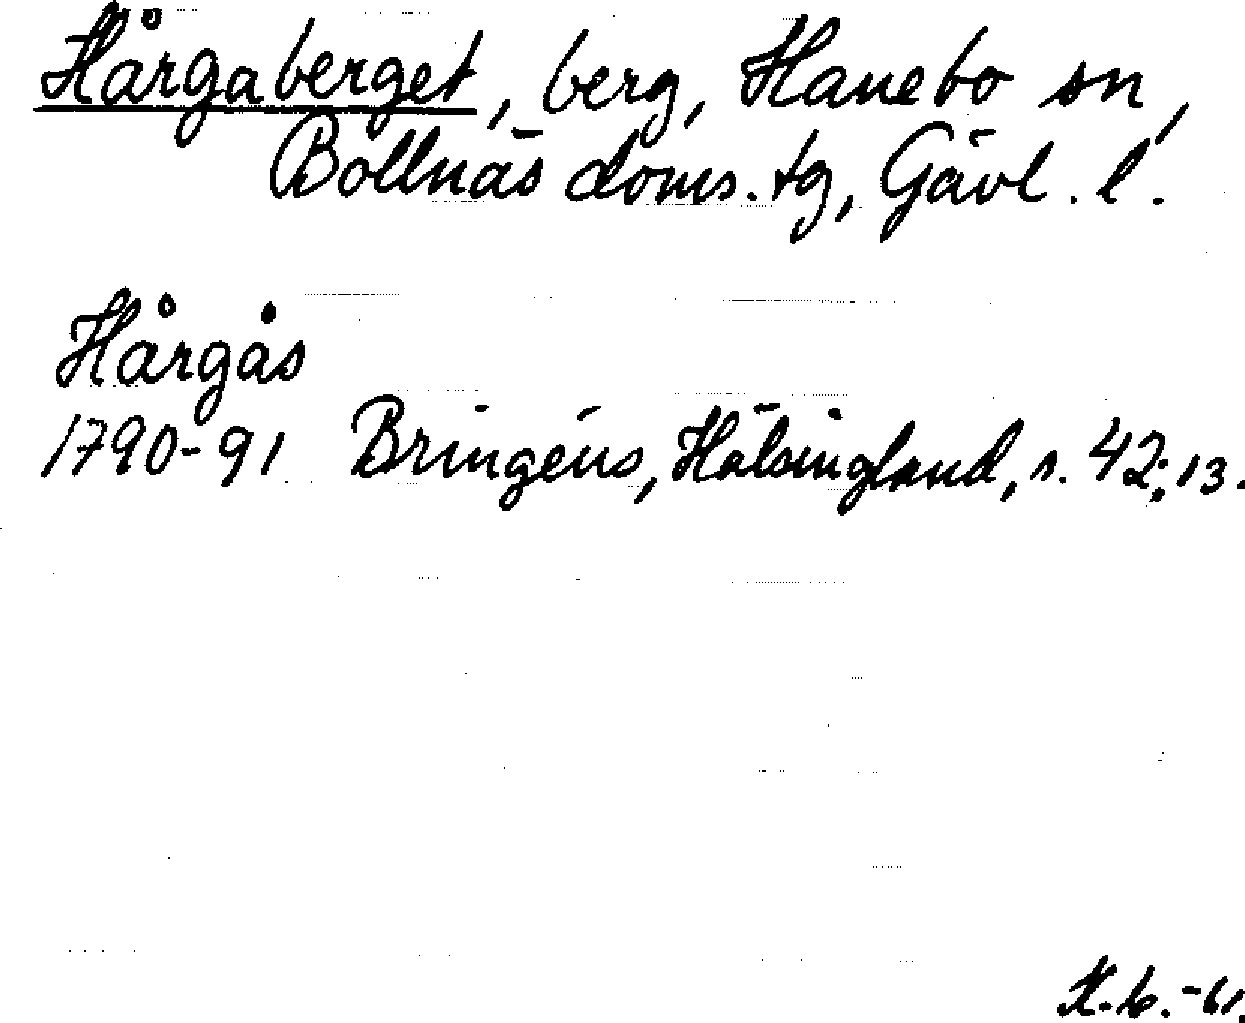 Hårgaberget, berg, Hanebo sn,
Bollnäs doms. tg, Gävl. l.
Hårgås
1790-91 Bringéus, Hälsingland, s. 42; 13.
K.b. -61.